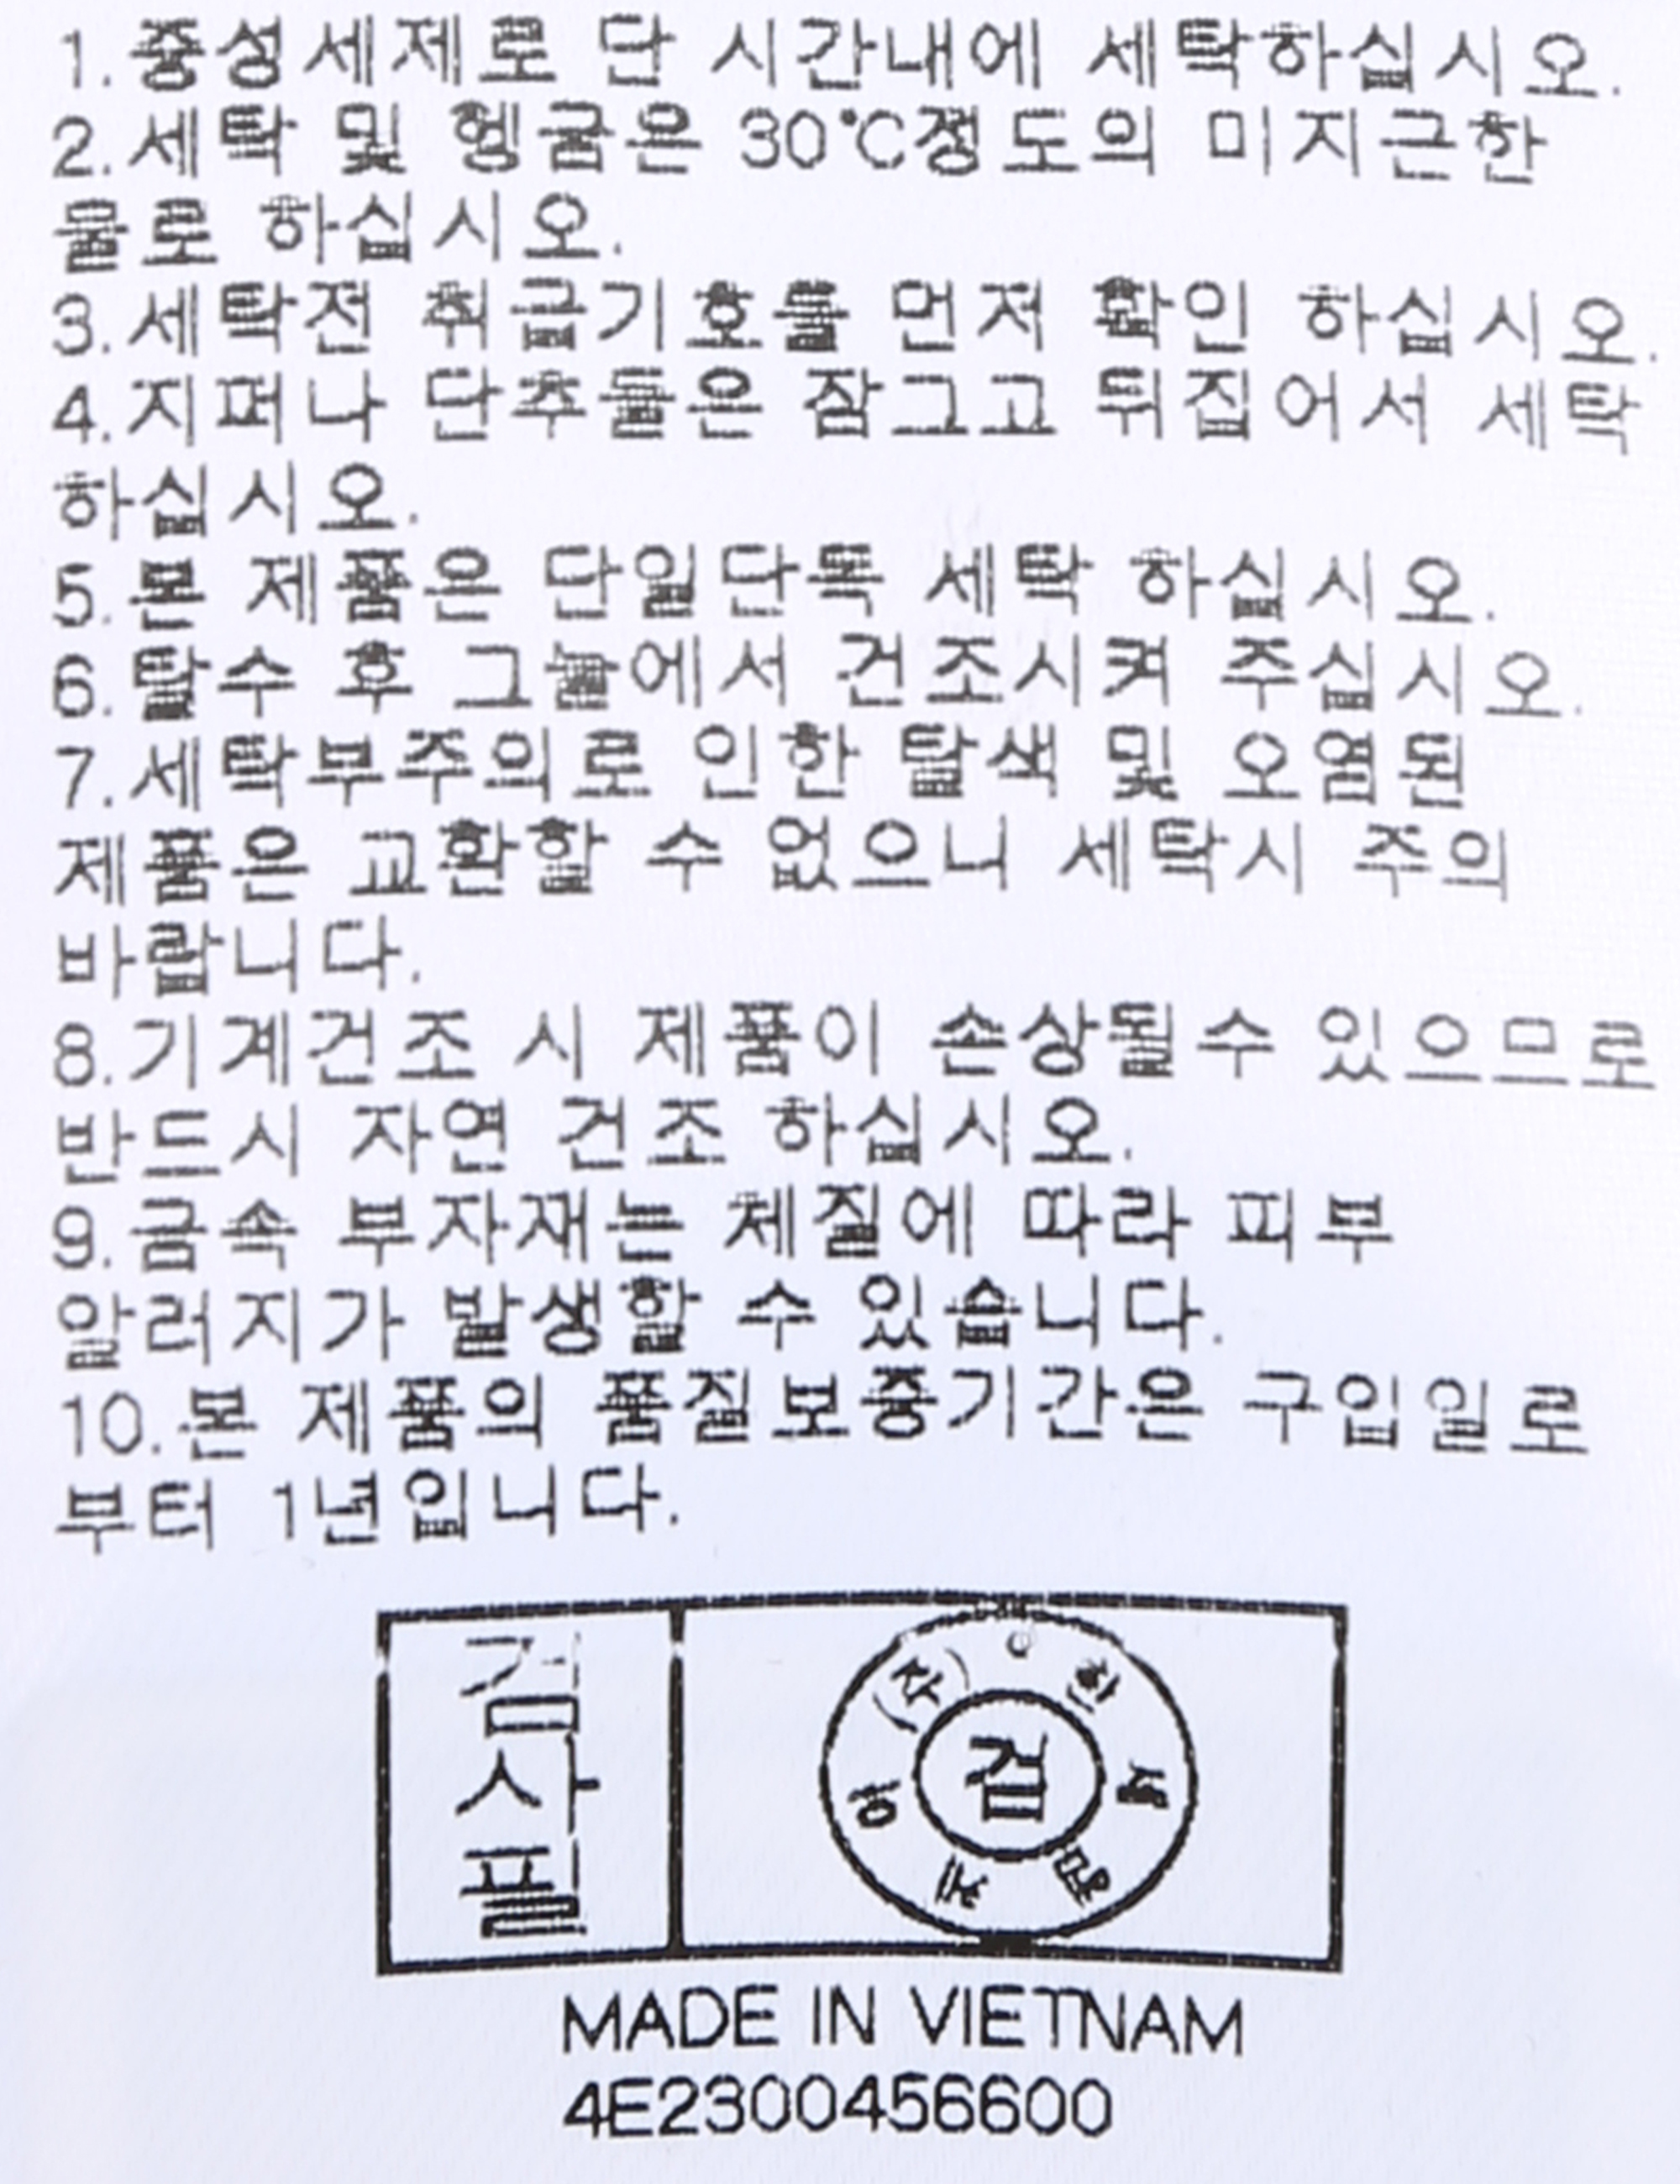 1.중성세제로 단 시간내에 세탁하십시오.
2.세탁 및 헹굼은 30℃정도의 미지근한
물로 하십시오.
3.세탁전 취급기호를 먼저 확인 하십시오.
4.지퍼나 단추들은 잠그고 뒤집어서 세탁
하십시오.
5.본 제품은 단일단독 세탁 하십시오.
6.탈수 후 그늘에서 건조시켜 주십시오.
7.세탁부주의로 인한 탈색 및 오염된
제품은 교환할 수 없으니 세탁시 주의
바랍니다.
8.기계건조 시 제품이 손상될수 있으므로
반드시 자연 건조 하십시오.
9.금속 부자재는 체질에 따라 피부
알러지가 발생할 수 있습니다.
10.본 제품의 품질보증기간은 구입일로
부터 1년입니다.
검사필
(주)한세엠케이
검
MADE IN VIETNAM
4E2300456600